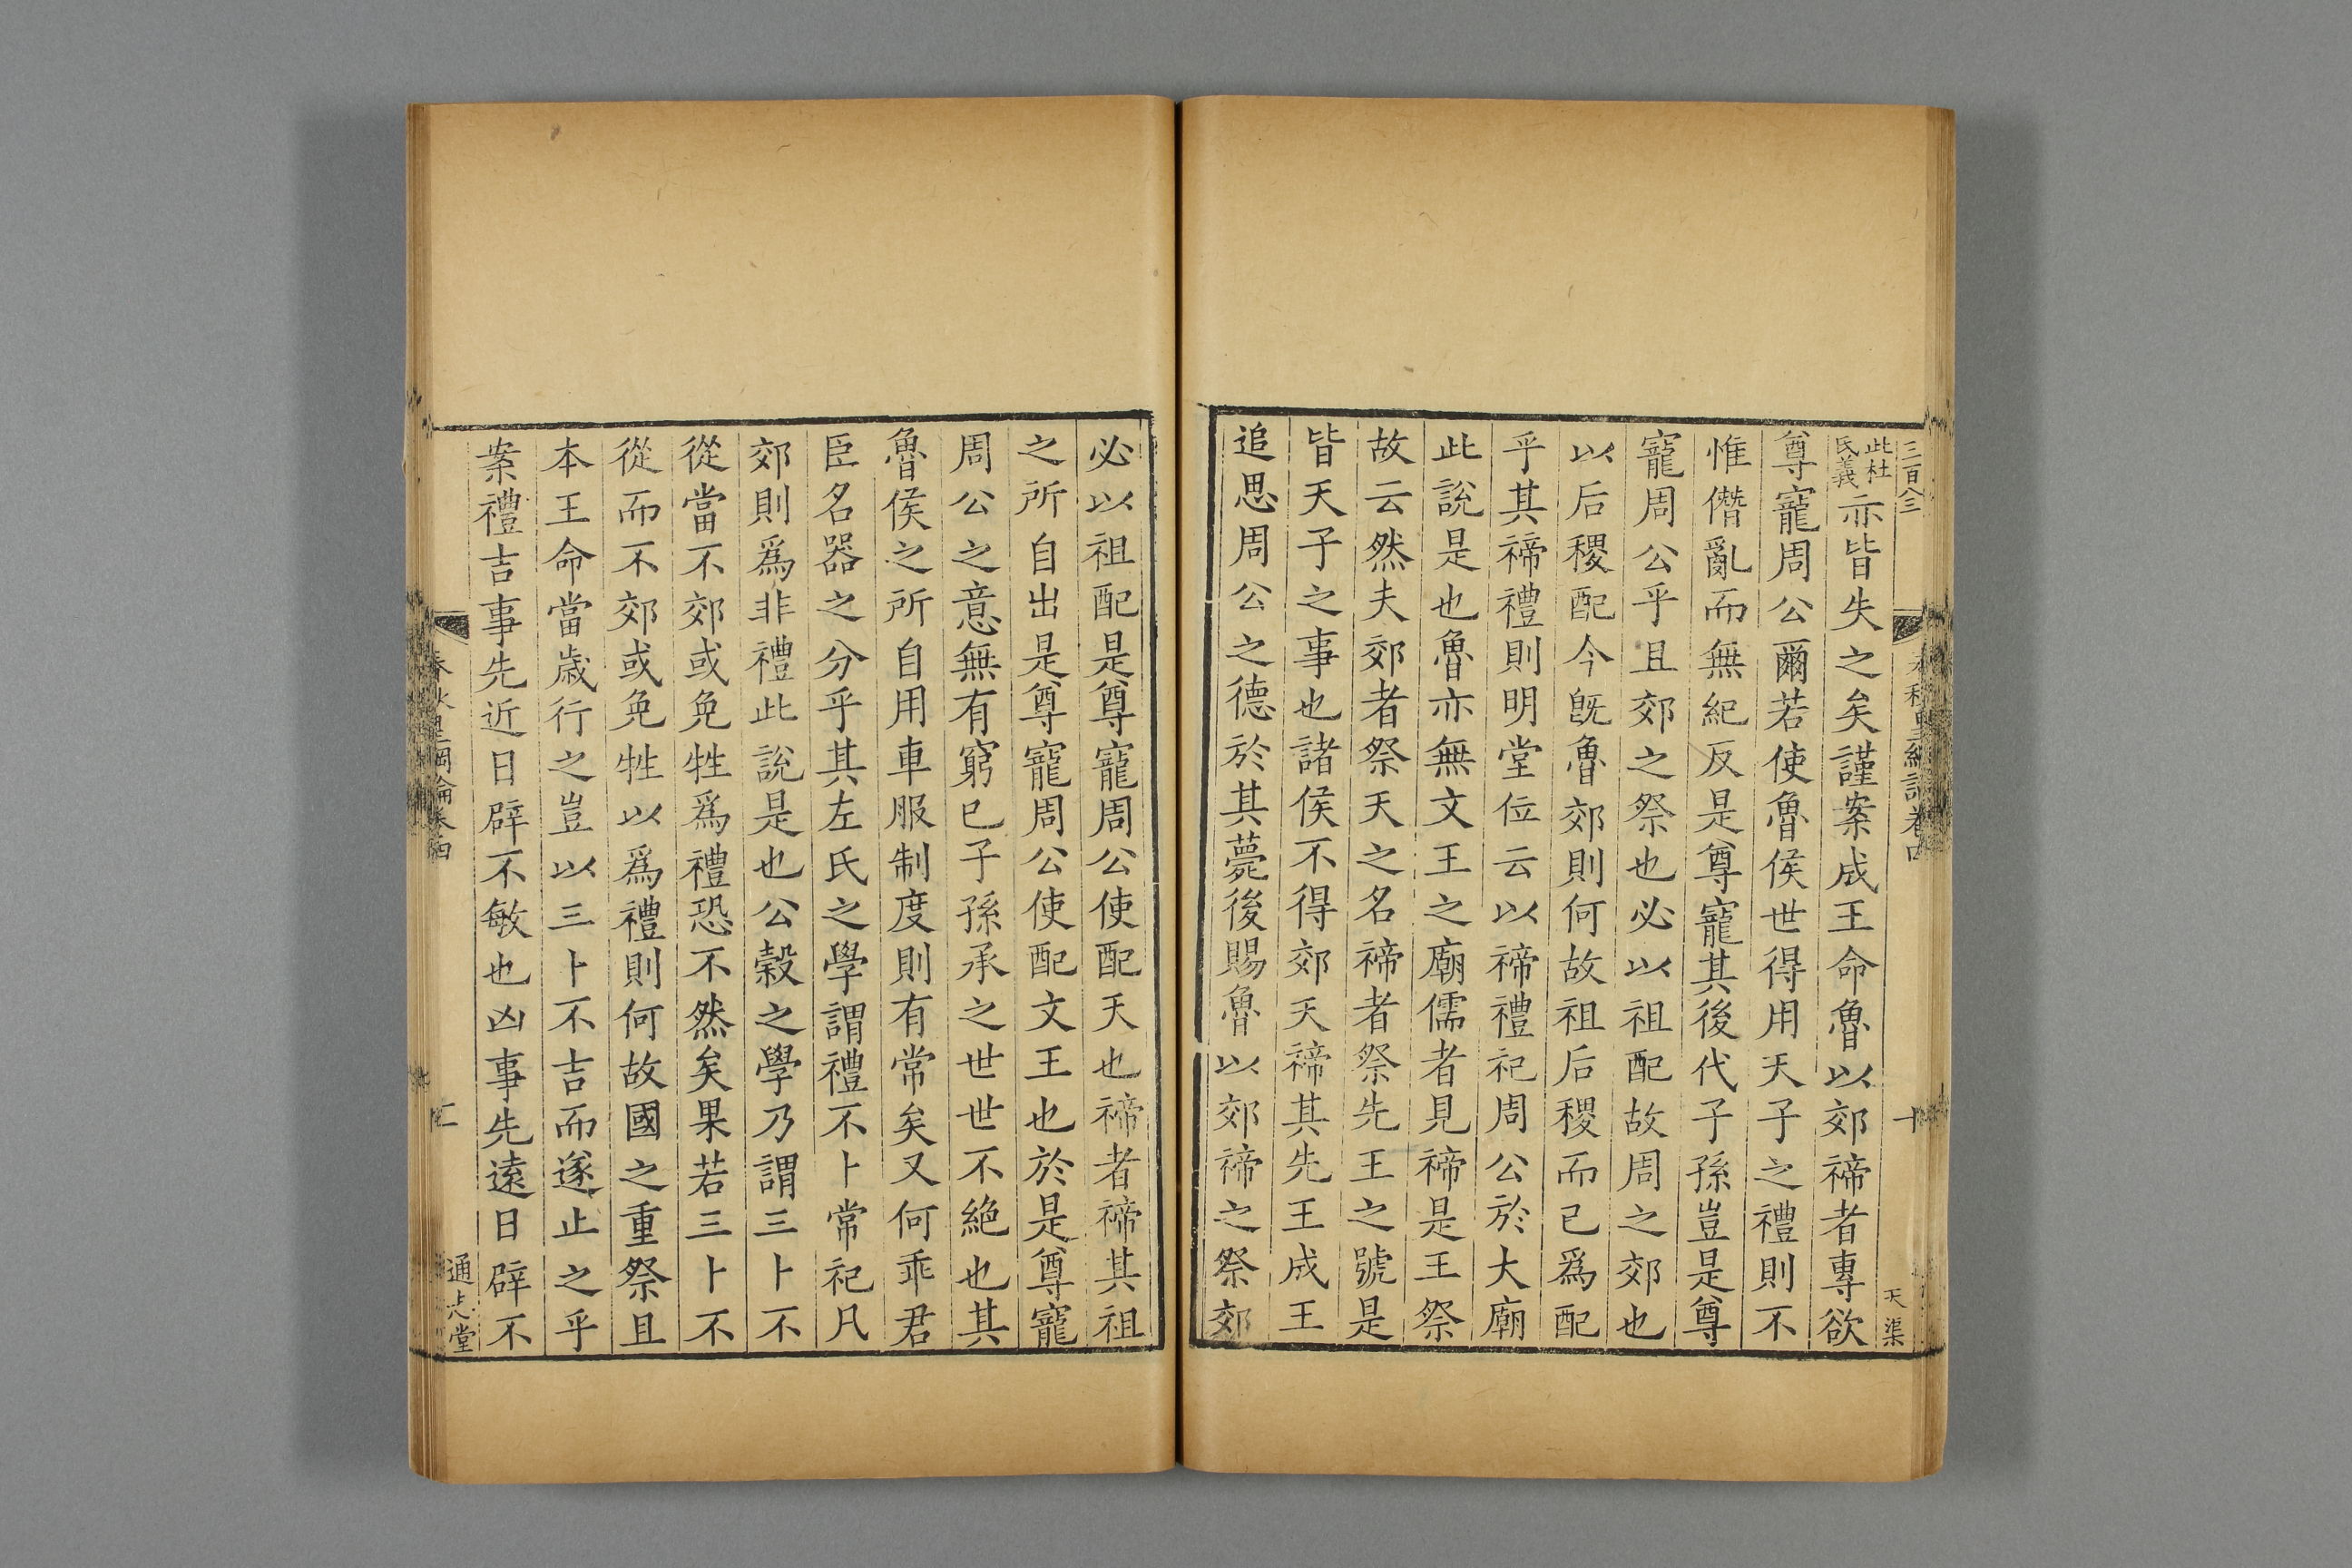 三百八三
春秋皇綱論卷四
十
天渠
此杜氏義亦皆失之矣謹案成王命魯以郊禘者專欲
尊寵周公爾若使魯侯世得用天子之禮則不
惟僭亂而無紀反是尊寵其後代子孫豈是尊
寵周公乎且郊之祭也必以祖配故周之郊也
以后稷配今旣魯郊則何故祖后稷而已爲配
乎其禘禮則明堂位云以禘禮祀周公於大廟
此說是也魯亦無文王之廟儒者見禘是王祭
故云然夫郊者祭天之名禘者祭先王之號是
皆天子之事也諸侯不得郊天禘其先王成王
追思周公之德於其薨後賜魯以郊禘之祭郊
必以祖配是尊寵周公使配天也禘者禘其祖
之所自出是尊寵周公使配文王也於是尊寵
周公之意無有窮已子孫承之世世不絕也其
魯侯之所自用車服制度則有常矣又何乖君
臣名器之分乎其左氏之學謂禮不卜常祀凡
郊則爲非禮此說是也公穀之學乃謂三卜不
從當不郊或免牲爲禮恐不然矣果若三卜不
從而不郊或免牲以爲禮則何故國之重祭且
本王命當歲行之豈以三卜不吉而遂止之乎
案禮吉事先近日辟不敏也凶事先遠日辟不
春秋皇綱論卷四
通志堂